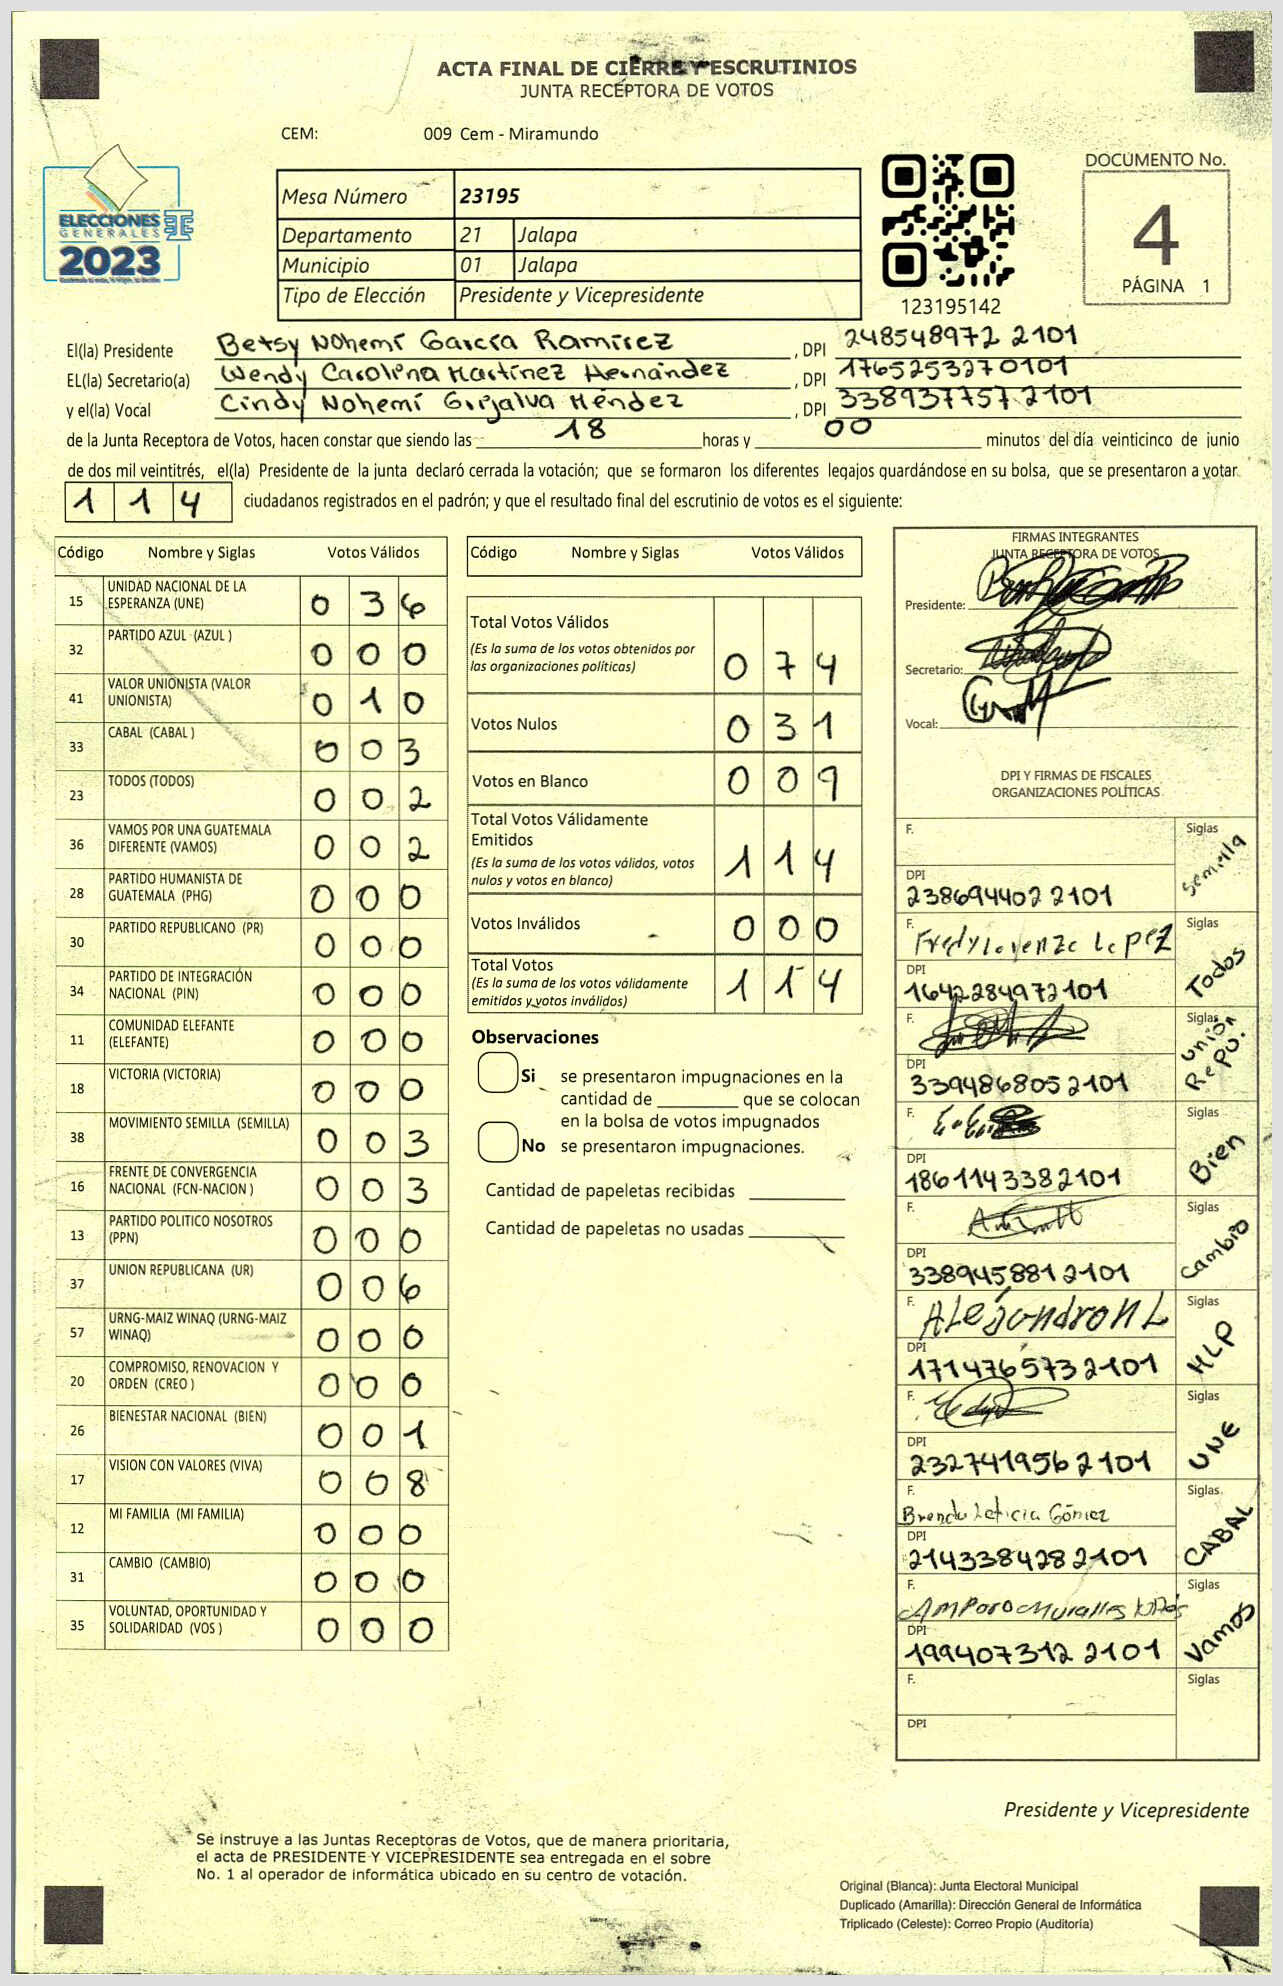 ACTA FINAL DE CIERRE Y ESCRUTINIOS
JUNTA RECEPTORA DE VOTOS
CEM: 009 Cem - Miramundo
DOCUMENTO No.
4
PÁGINA 1
ELECCIONES
GENERALES
2023
Mesa Número 23195
Departamento 21 Jalapa
Municipio 01 Jalapa
Tipo de Elección Presidente y Vicepresidente
123195142
El(la) Presidente Betsy Nohemí García Ramírez, DPI 248548972 2101
EL(la) Secretario(a) Wendy Carolina Martínez Hernández, DPI 1765253270101
y el(la) Vocal Cindy Nohemí Grijalva Méndez, DPI 338937757 2101
de la Junta Receptora de Votos, hacen constar que siendo las 18 horas y 00 minutos del día veinticinco de junio
de dos mil veintitrés, el(la) Presidente de la junta declaró cerrada la votación; que se formaron los diferentes legajos quardándose en su bolsa, que se presentaron a votar
1 1 4 ciudadanos registrados en el padrón; y que el resultado final del escrutinio de votos es el siguiente:
Código Nombre y Siglas Votos Válidos
15 UNIDAD NACIONAL DE LA ESPERANZA (UNE) 0 3 6
32 PARTIDO AZUL (AZUL ) 0 0 0
41 VALOR UNIONISTA (VALOR UNIONISTA) 0 1 0
33 CABAL (CABAL ) 0 0 3
23 TODOS (TODOS) 0 0 2
36 VAMOS POR UNA GUATEMALA DIFERENTE (VAMOS) 0 0 2
28 PARTIDO HUMANISTA DE GUATEMALA (PHG) 0 0 0
30 PARTIDO REPUBLICANO (PR) 0 0 0
34 PARTIDO DE INTEGRACIÓN NACIONAL (PIN) 0 0 0
11 COMUNIDAD ELEFANTE (ELEFANTE) 0 0 0
18 VICTORIA (VICTORIA) 0 0 0
38 MOVIMIENTO SEMILLA (SEMILLA) 0 0 3
16 FRENTE DE CONVERGENCIA NACIONAL (FCN-NACION ) 0 0 3
13 PARTIDO POLITICO NOSOTROS (PPN) 0 0 0
37 UNION REPUBLICANA (UR) 0 0 6
57 URNG-MAIZ WINAQ (URNG-MAIZ WINAQ) 0 0 0
20 COMPROMISO, RENOVACION Y ORDEN (CREO ) 0 0 0
26 BIENESTAR NACIONAL (BIEN) 0 0 1
17 VISION CON VALORES (VIVA) 0 0 8
12 MI FAMILIA (MI FAMILIA) 0 0 0
31 CAMBIO (CAMBIO) 0 0 0
35 VOLUNTAD, OPORTUNIDAD Y SOLIDARIDAD (VOS ) 0 0 0
Código Nombre y Siglas Votos Válidos
Total Votos Válidos 0 7 4
(Es la suma de los votos obtenidos por
las organizaciones políticas)
Votos Nulos 0 3 1
Votos en Blanco 0 0 9
Total Votos Válidamente
Emitidos 1 1 4
(Es la suma de los votos válidos, votos
nulos y votos en blanco)
Votos Inválidos 0 0 0
Total Votos 1 1 4
(Es la suma de los votos válidamente
emitidos y votos inválidos)
Observaciones
Si se presentaron impugnaciones en la
cantidad de ________ que se colocan
en la bolsa de votos impugnados
No se presentaron impugnaciones.
Cantidad de papeletas recibidas
Cantidad de papeletas no usadas
FIRMAS INTEGRANTES
JUNTA RECEPTORA DE VOTOS
Presidente:
Secretario:
Vocal:
DPI Y FIRMAS DE FISCALES
ORGANIZACIONES POLÍTICAS
F. Siglas Semilla
DPI
238694402 2101
F. Fredy Lorenzo Lopez Siglas Todos
DPI
1642284972101
F. Siglas Unión Repu.
DPI
3394868052101
F. Siglas Bien
DPI
1861143382101
F. Siglas Cambio
DPI
3389458812101
F. Alejandro N L Siglas MLP
DPI
1714765732101
F. Siglas UNE
DPI
2327419562101
F. Brenda Leticia Gómez Siglas CABAL
DPI
2143384282101
F. Amparo Muralles Siglas Vamos
DPI
199407312 2101
F. Siglas
DPI
Presidente y Vicepresidente
Se instruye a las Juntas Receptoras de Votos, que de manera prioritaria,
el acta de PRESIDENTE Y VICEPRESIDENTE sea entregada en el sobre
No. 1 al operador de informática ubicado en su centro de votación.
Original (Blanca): Junta Electoral Municipal
Duplicado (Amarilla): Dirección General de Informática
Triplicado (Celeste): Correo Propio (Auditoría)